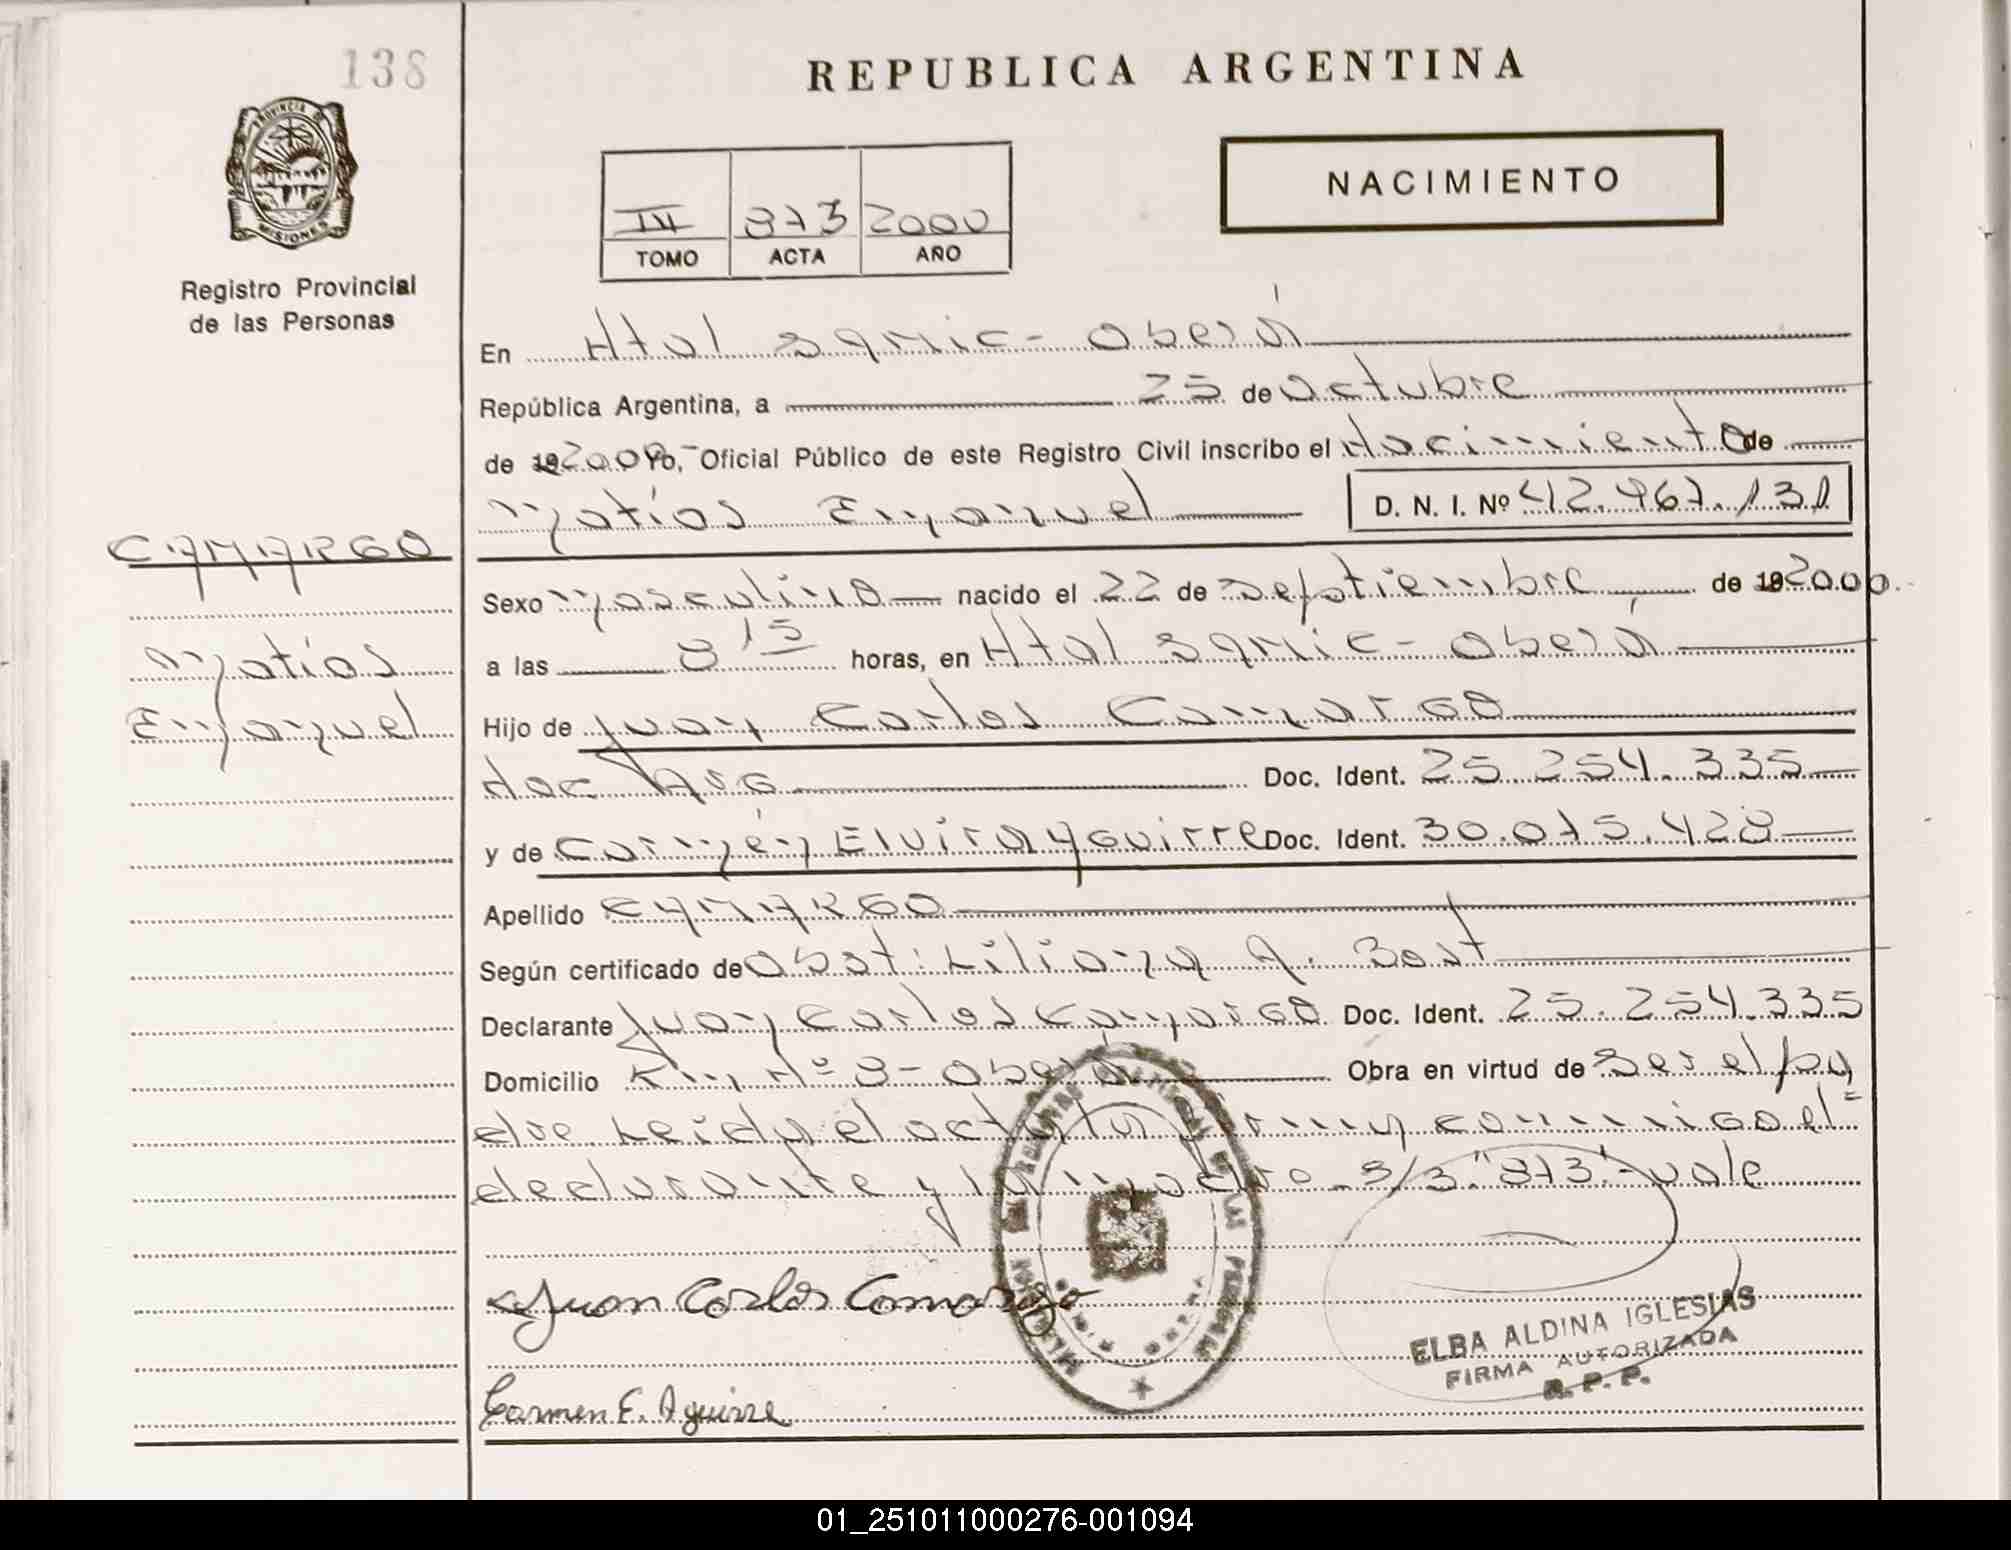 138
REPUBLICA ARGENTINA
PROVINCIA DE
MISIONES
Registro Provincial
de las Personas
NACIMIENTO
873 2000
TOMO ACTA AÑO
En Htal Samic - Oberá
República Argentina, a 25 de Octubre
de 192000 Yo, Oficial Público de este Registro Civil inscribo el Nacimiento de
Matías Emanuel D. N. I. Nº 42.467.131
CAMARGO
Matías
Emanuel
Sexo Masculino nacido el 22 de Septiembre de 192000.
a las 8 15 horas, en Htal Samic - Oberá
Hijo de Juan Carlos Camargo
Nac Arg Doc. Ident. 25.254.335
y de Carmen Elvira Aguirre Doc. Ident. 30.075.428
Apellido CAMARGO
Según certificado de Obst: Liliana A. Bost
Declarante Juan Carlos Camargo Doc. Ident. 25.254.335
Domicilio Km Nº 8 - Oberá Obra en virtud de ser el pa
dre. Leida el acta la firman conmigo el =
declarante y la madre. S/B. "873". vale
Juan Carlos Camargo
ELBA ALDINA IGLESIAS
FIRMA AUTORIZADA
R. P. P.
Carmen E. Aguirre
01_251011000276-001094